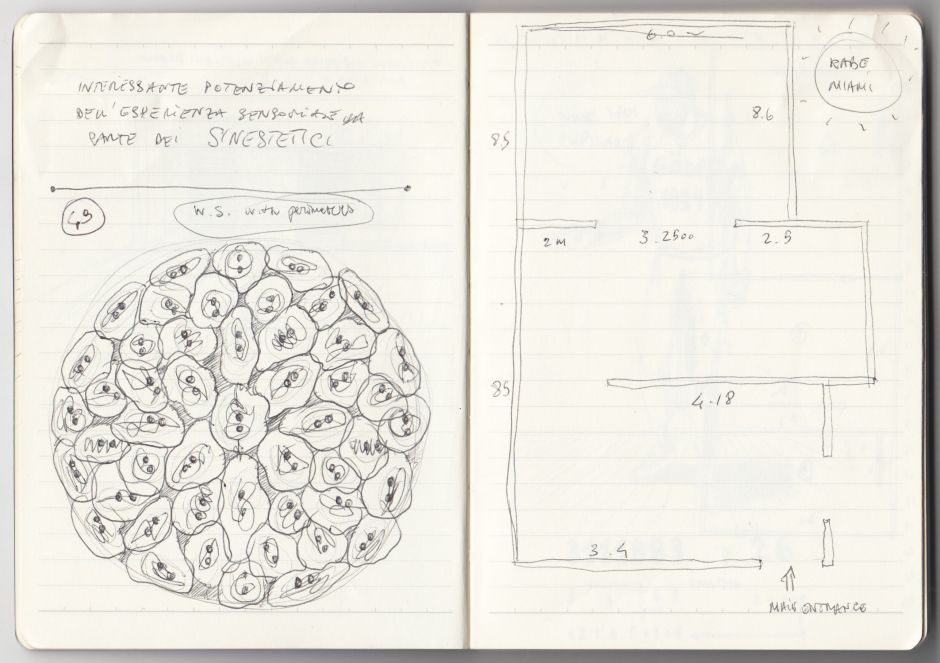 INTERESSANTE POTENZIAMENTO
DELL'ESPERIENZA SENSORIALE DA
PARTE DEI SINESTETICI
W.S. with perimeters
6.0
RABE
MIAMI
8.6
8.5
2 m
3.2500
2.5
85
4.18
3.4
MAIN ENTRANCE